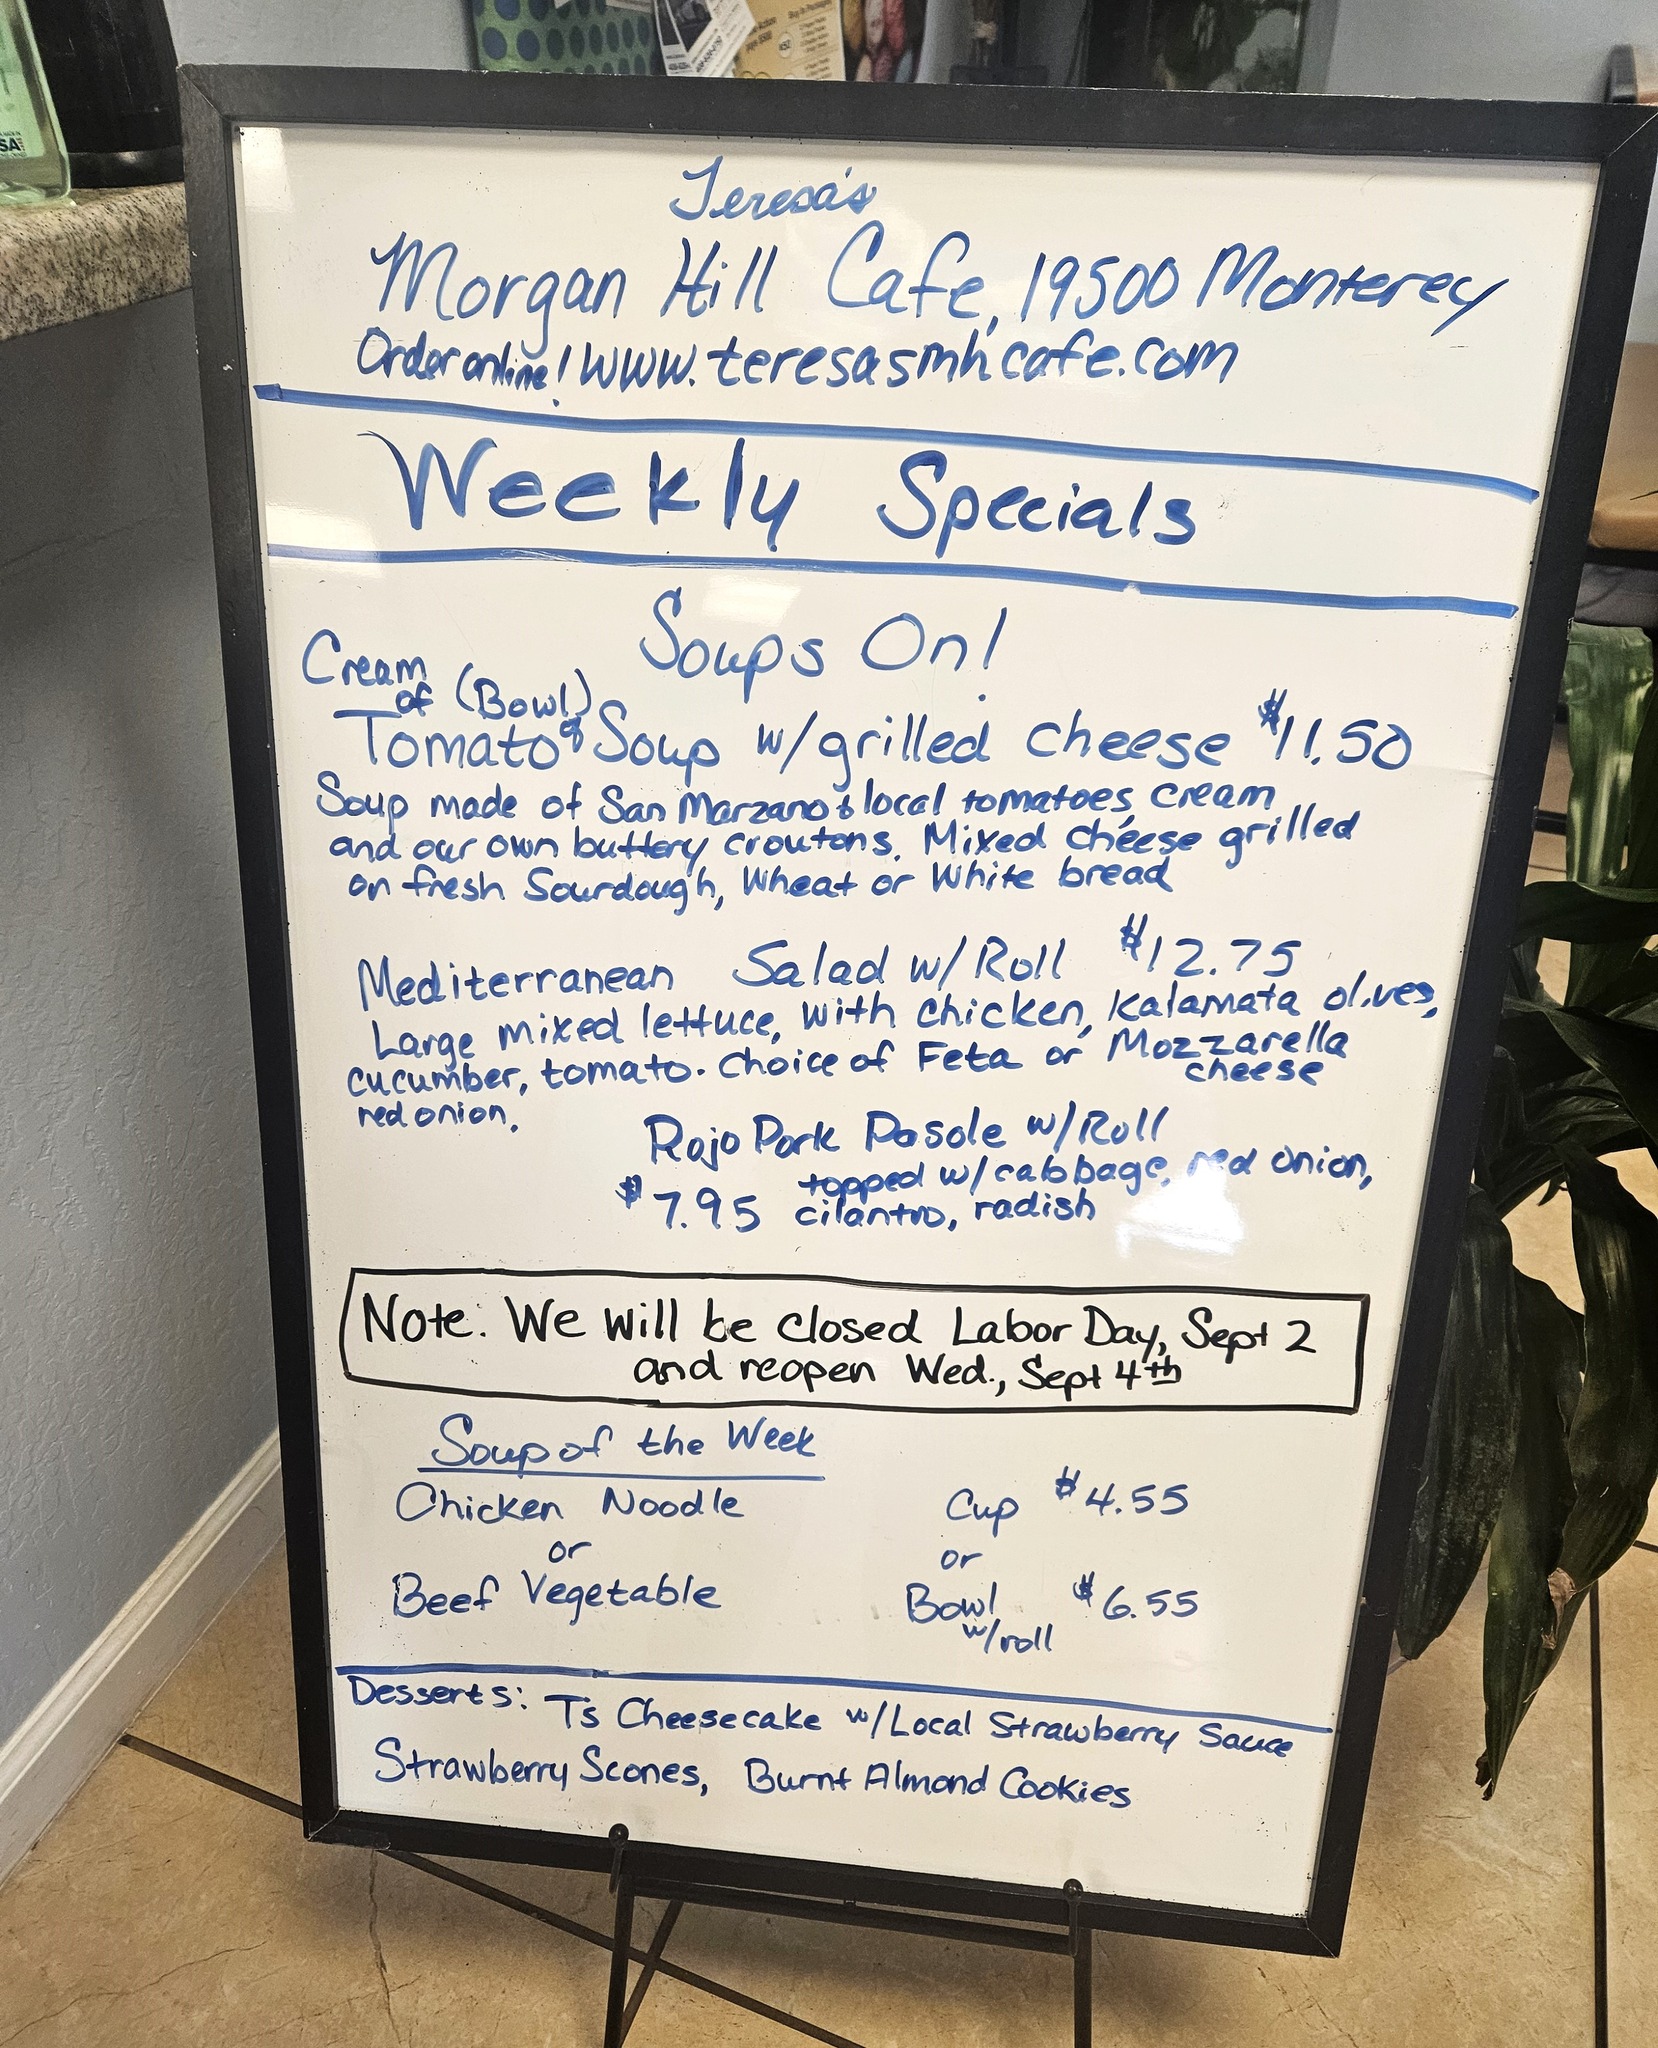 Teresa's
Morgan Hill Cafe, 19500 Monterey
Order online! www.teresasmhcafe.com
Weekly Specials
Soups On!
Cream
of (Bowl)
Tomato of Soup w/grilled cheese $11.50
Soup made of San Marzano & local tomatoes, cream
and our own buttery croutons. Mixed cheese grilled
on fresh Sourdough, Wheat or White bread
Mediterranean Salad w/Roll $12.75
Large mixed lettuce, with chicken, Kalamata olives,
cucumber, tomato. Choice of Feta or Mozzarella
cheese
red onion.
Rojo Pork Posole w/Roll
$7.95 topped w/cabbage, red onion,
cilantro, radish
Note: We will be closed Labor Day, Sept 2
and reopen Wed., Sept 4th
Soup of the Week
Chicken Noodle Cup $4.55
or or
Beef Vegetable Bowl $6.55
w/roll
Desserts: T's Cheesecake w/Local Strawberry Sauce
Strawberry Scones, Burnt Almond Cookies